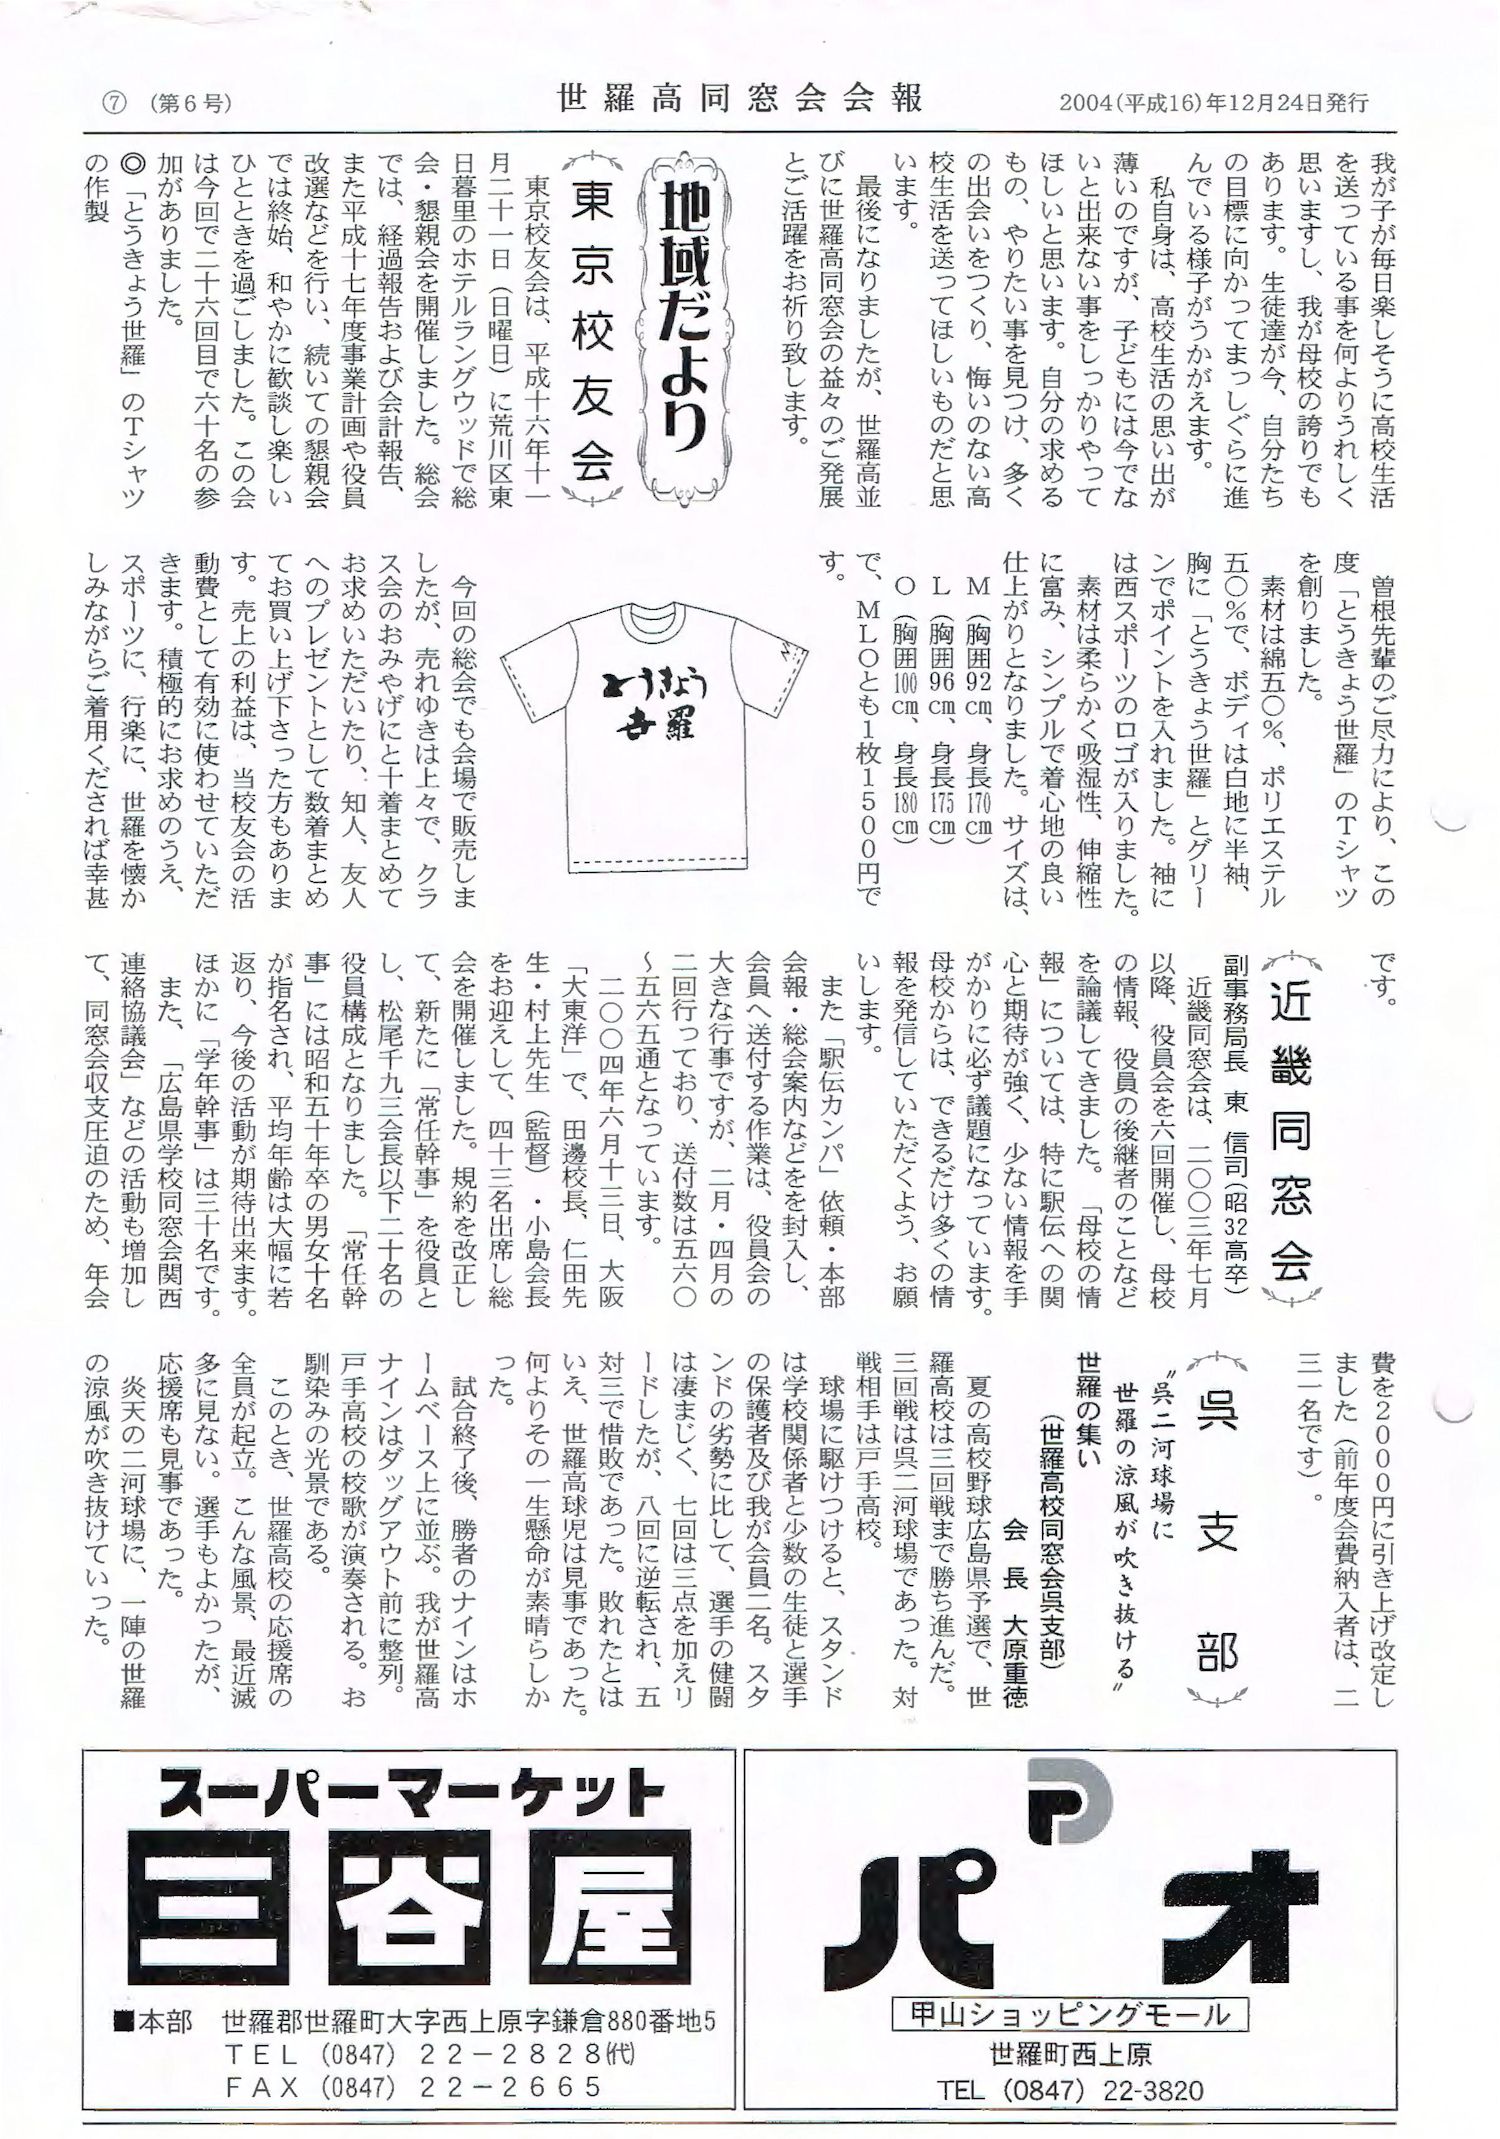 ⑦　(第６号)
世羅高同窓会会報
2004(平成16)年12月24日発行
我が子が毎日楽しそうに高校生活
を送っている事を何よりうれしく
思いますし、我が母校の誇りでも
あります。生徒達が今、自分たち
の目標に向かってまっしぐらに進
んでいる様子がうかがえます。
　私自身は、高校生活の思い出が
薄いのですが、子どもには今でな
いと出来ない事をしっかりやって
ほしいと思います。自分の求める
もの、やりたい事を見つけ、多く
の出会いをつくり、悔いのない高
校生活を送ってほしいものだと思
います。
　最後になりましたが、世羅高並
びに世羅高同窓会の益々のご発展
とご活躍をお祈り致します。
地域だより
東京校友会
　東京校友会は、平成十六年十一
月二十一日（日曜日）に荒川区東
日暮里のホテルラングウッドで総
会・懇親会を開催しました。総会
では、経過報告および会計報告、
また平成十七年度事業計画や役員
改選などを行い、続いての懇親会
では終始、和やかに歓談し楽しい
ひとときを過ごしました。この会
は今回で二十六回目で六十名の参
加がありました。
◎「とうきょう世羅」のＴシャツ
の作製
　曽根先輩のご尽力により、この
度「とうきょう世羅」のＴシャツ
を創りました。
　素材は綿五〇％、ポリエステル
五〇％で、ボディは白地に半袖、
胸に「とうきょう世羅」とグリー
ンでポイントを入れました。袖に
は西スポーツのロゴが入りました。
　素材は柔らかく吸湿性、伸縮性
に富み、シンプルで着心地の良い
仕上がりとなりました。サイズは、
Ｍ（胸囲92㎝、身長170㎝）
Ｌ（胸囲96㎝、身長175㎝）
Ｏ（胸囲100㎝、身長180㎝）
で、ＭＬＯとも１枚１５００円で
す。
とうきょう
世羅
　今回の総会でも会場で販売しま
したが、売れゆきは上々で、クラ
ス会のおみやげにと十着まとめて
お求めいただいたり、知人、友人
へのプレゼントとして数着まとめ
てお買い上げ下さった方もありま
す。売上の利益は、当校友会の活
動費として有効に使わせていただ
きます。積極的にお求めのうえ、
スポーツに、行楽に、世羅を懐か
しみながらご着用くだされば幸甚
です。
近畿同窓会
副事務局長　東　信司（昭32高卒）
　近畿同窓会は、二〇〇三年七月
以降、役員会を六回開催し、母校
の情報、役員の後継者のことなど
を論議してきました。「母校の情
報」については、特に駅伝への関
心と期待が強く、少ない情報を手
がかりに必ず議題になっています。
母校からは、できるだけ多くの情
報を発信していただくよう、お願
いします。
　また「駅伝カンパ」依頼・本部
会報・総会案内などをを封入し、
会員へ送付する作業は、役員会の
大きな行事ですが、二月・四月の
二回行っており、送付数は五六〇
～五六五通となっています。
　二〇〇四年六月十三日、大阪
「大東洋」で、田邊校長、仁田先
生・村上先生（監督）・小島会長
をお迎えして、四十三名出席し総
会を開催しました。規約を改正し
て、新たに「常任幹事」を役員と
し、松尾千九三会長以下二十名の
役員構成となりました。「常任幹
事」には昭和五十年卒の男女十名
が指名され、平均年齢は大幅に若
返り、今後の活動が期待出来ます。
ほかに「学年幹事」は三十名です。
　また、「広島県学校同窓会関西
連絡協議会」などの活動も増加し
て、同窓会収支圧迫のため、年会
費を２０００円に引き上げ改定し
ました（前年度会費納入者は、二
三一名です）。
呉支部
〝呉二河球場に
世羅の涼風が吹き抜ける〟
世羅の集い
（世羅高校同窓会呉支部）
会　長　大原重徳
　夏の高校野球広島県予選で、世
羅高校は三回戦まで勝ち進んだ。
三回戦は呉二河球場であった。対
戦相手は戸手高校。
　球場に駆けつけると、スタンド
は学校関係者と少数の生徒と選手
の保護者及び我が会員二名。スタ
ンドの劣勢に比して、選手の健闘
は凄まじく、七回は三点を加えリ
ードしたが、八回に逆転され、五
対三で惜敗であった。敗れたとは
いえ、世羅高球児は見事であった。
何よりその一生懸命が素晴らしか
った。
　試合終了後、勝者のナインはホ
ームベース上に並ぶ。我が世羅高
ナインはダッグアウト前に整列。
戸手高校の校歌が演奏される。お
馴染みの光景である。
　このとき、世羅高校の応援席の
全員が起立。こんな風景、最近滅
多に見ない。選手もよかったが、
応援席も見事であった。
　炎天の二河球場に、一陣の世羅
の涼風が吹き抜けていった。
スーパーマーケット
三谷屋
■本部　世羅郡世羅町大字西上原字鎌倉880番地5
ＴＥＬ（0847）２２－２８２８㈹
ＦＡＸ（0847）２２－２６６５
P
パオ
甲山ショッピングモール
世羅町西上原
TEL（0847）22-3820